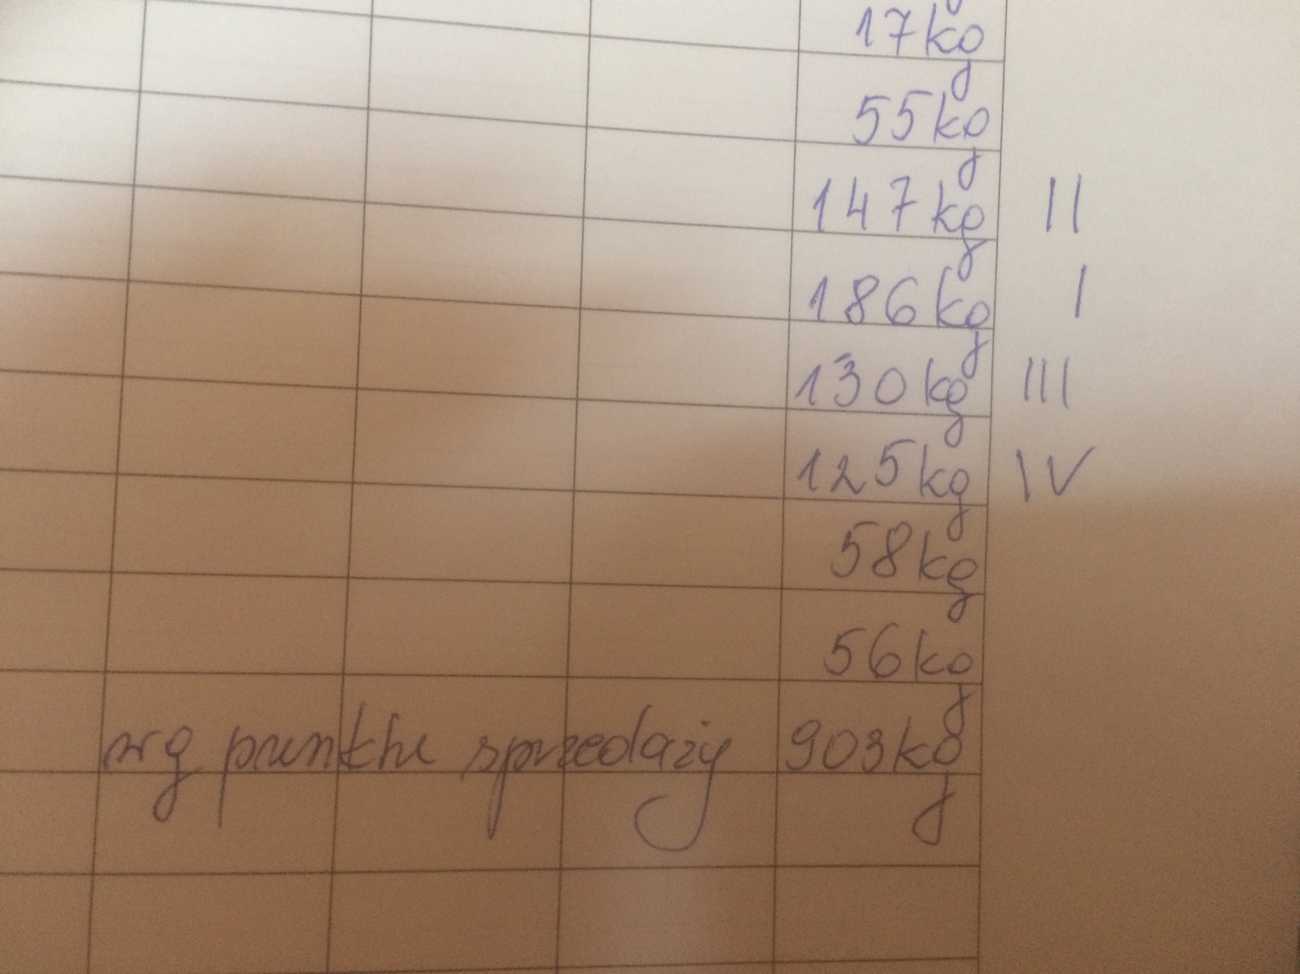 17kg
55kg
147kg II
186kg I
130kg III
125kg IV
58kg
56kg
wg punktu sprzedaży 903kg